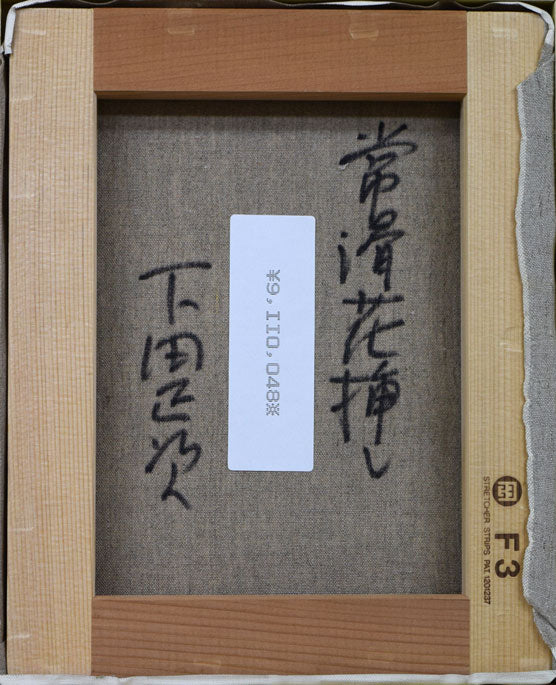 常滑花挿し
下田正次
¥9,110,048※
F3
STRETCHER STRIPS PAT.1201237